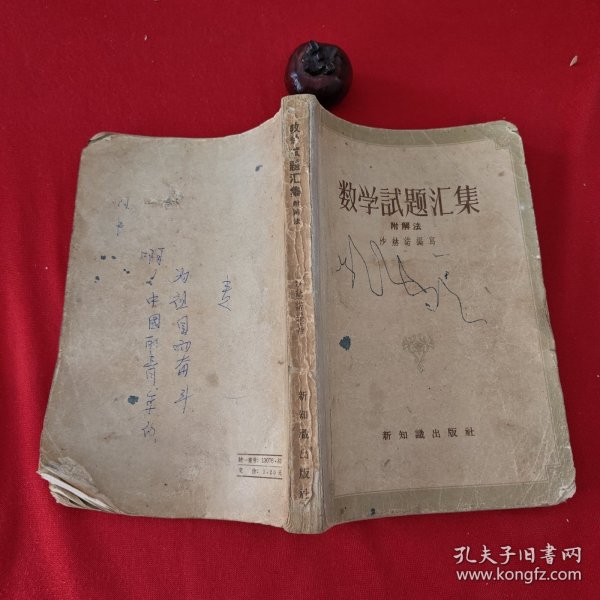 数学試题汇集
附解法
沙赫诺編写
新知識出版社
数学試题汇集
附解法
新知識出版社
为祖国而奋斗
啊！中國的青年们
統一書号: 13076·
定 价:
孔夫子旧书网
www.kongfz.com